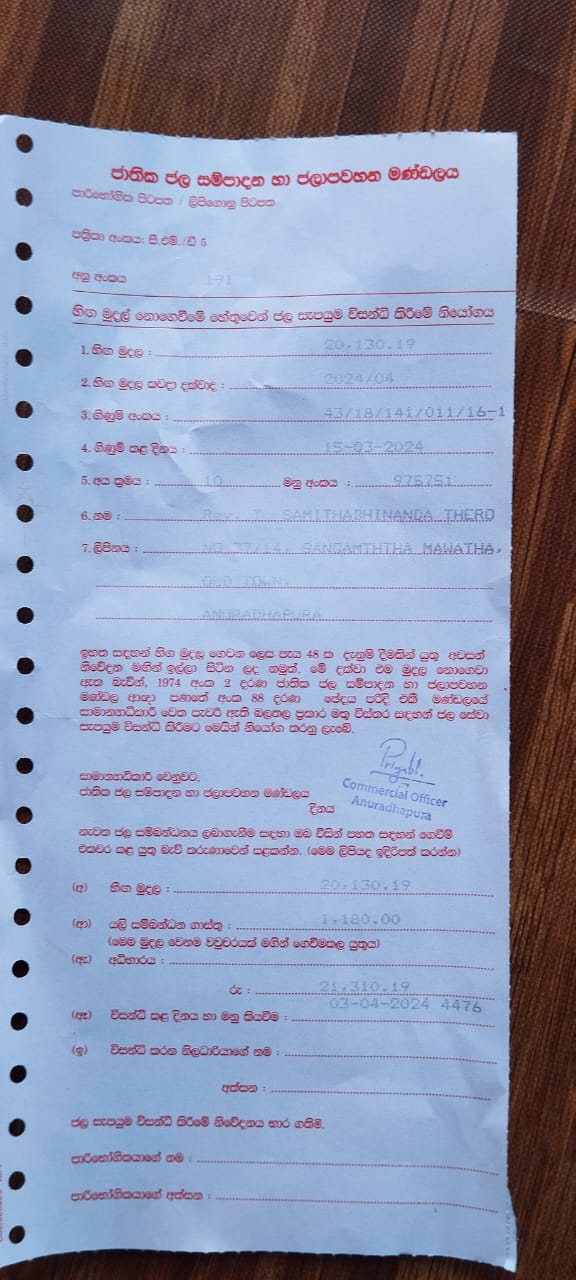 ජාතික ජල සම්පාදන හා ජලාපවහන මණ්ඩලය
පාරිභෝගික පිටපත / ලිපිගොනු පිටපත
පත්‍රිකා අංකය: සී.එම්./ඩී 5
අනු අංකය 191
හිඟ මුදල් නොගෙවීමේ හේතුවෙන් ජල සැපයුම විසන්ධි කිරීමේ නියෝගය
1. හිඟ මුදල : 20,130.19
2. හිඟ මුදල කවදා දක්වාද : 2024/04
3. ගිණුම් අංකය : 43/18/141/011/16-1
4. ගිණුම් කළ දිනය : 15-03-2024
5. අය ක්‍රමය : 10 මනු අංකය : 975751
6. නම : Rev. T. SAMITHABHINANDA THERO
7. ලිපිනය : NO.77/14, GANGAMTHTHA MAWATHA,
OLD TOWN,
ANURADHAPURA
ඉහත සඳහන් හිඟ මුදල ගෙවන ලෙස පැය 48 ක දැනුම් දීමකින් යුතු අවසන්
නිවේදන මඟින් ඉල්ලා සිටින ලද නමුත්, මේ දක්වා එම මුදල නොගෙවා
ඇත බැවින්, 1974 අංක 2 දරණ ජාතික ජල සම්පාදන හා ජලාපවහන
මණ්ඩල ආඥා පණතේ අංක 88 දරණ ඡේදය පරිදි එකී මණ්ඩලයේ
සාමාන්‍යාධිකාරී වෙත පැවරී ඇති බලතල ප්‍රකාර මතු විස්තර සඳහන් ජල සේවා
සැපයුම විසන්ධි කිරීමට මෙයින් නියෝග කරනු ලැබේ.
සාමාන්‍යාධිකාරී වෙනුවට,
ජාතික ජල සම්පාදන හා ජලාපවහන මණ්ඩලය
Commercial Officer
Anuradhapura
දිනය
නැවත ජල සම්බන්ධනය ලබාගැනීම සඳහා ඔබ විසින් පහත සඳහන් ගෙවීම්
එකවර කළ යුතු බැව් කරුණාවෙන් සළකන්න. (මෙම ලිපියද ඉදිරිපත් කරන්න)
(අ) හිඟ මුදල : 20,130.19
(ආ) යළි සම්බන්ධන ගාස්තු : 1,180.00
(මෙම මුදල වෙනම වවුචරයක් මගින් ගෙවීමකල යුතුය)
(ඇ) අධිභාරය :
රු : 21,310.19
03-04-2024 4476
(ඈ) විසන්ධි කළ දිනය හා මනු කියවීම :
(ඉ) විසන්ධි කරන නිලධාරියාගේ නම :
අත්සන :
ජල සැපයුම විසන්ධි කිරීමේ නිවේදනය භාර ගතිමි.
පාරිභෝගිකයාගේ නම :
පාරිභෝගිකයාගේ අත්සන :